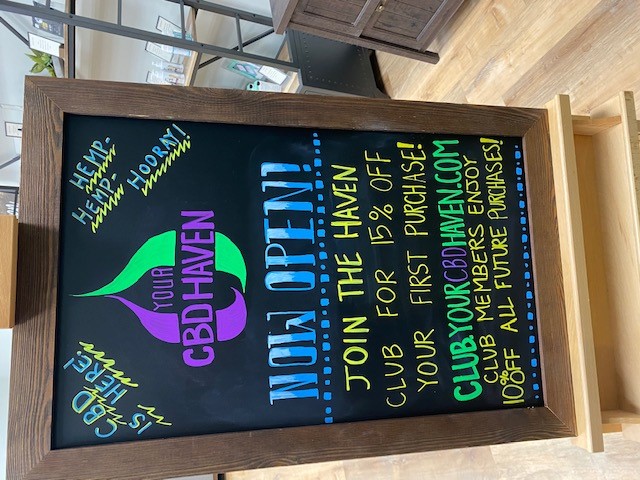 CBD
IS HERE!
HEMP-
HEMP-
HOORAY!
YOUR
CBD HAVEN
NOW OPEN!
JOIN THE HAVEN
CLUB FOR 15% OFF
YOUR FIRST PURCHASE!
CLUB.YOURCBDHAVEN.COM
CLUB MEMBERS ENJOY
10% OFF ALL FUTURE PURCHASES!